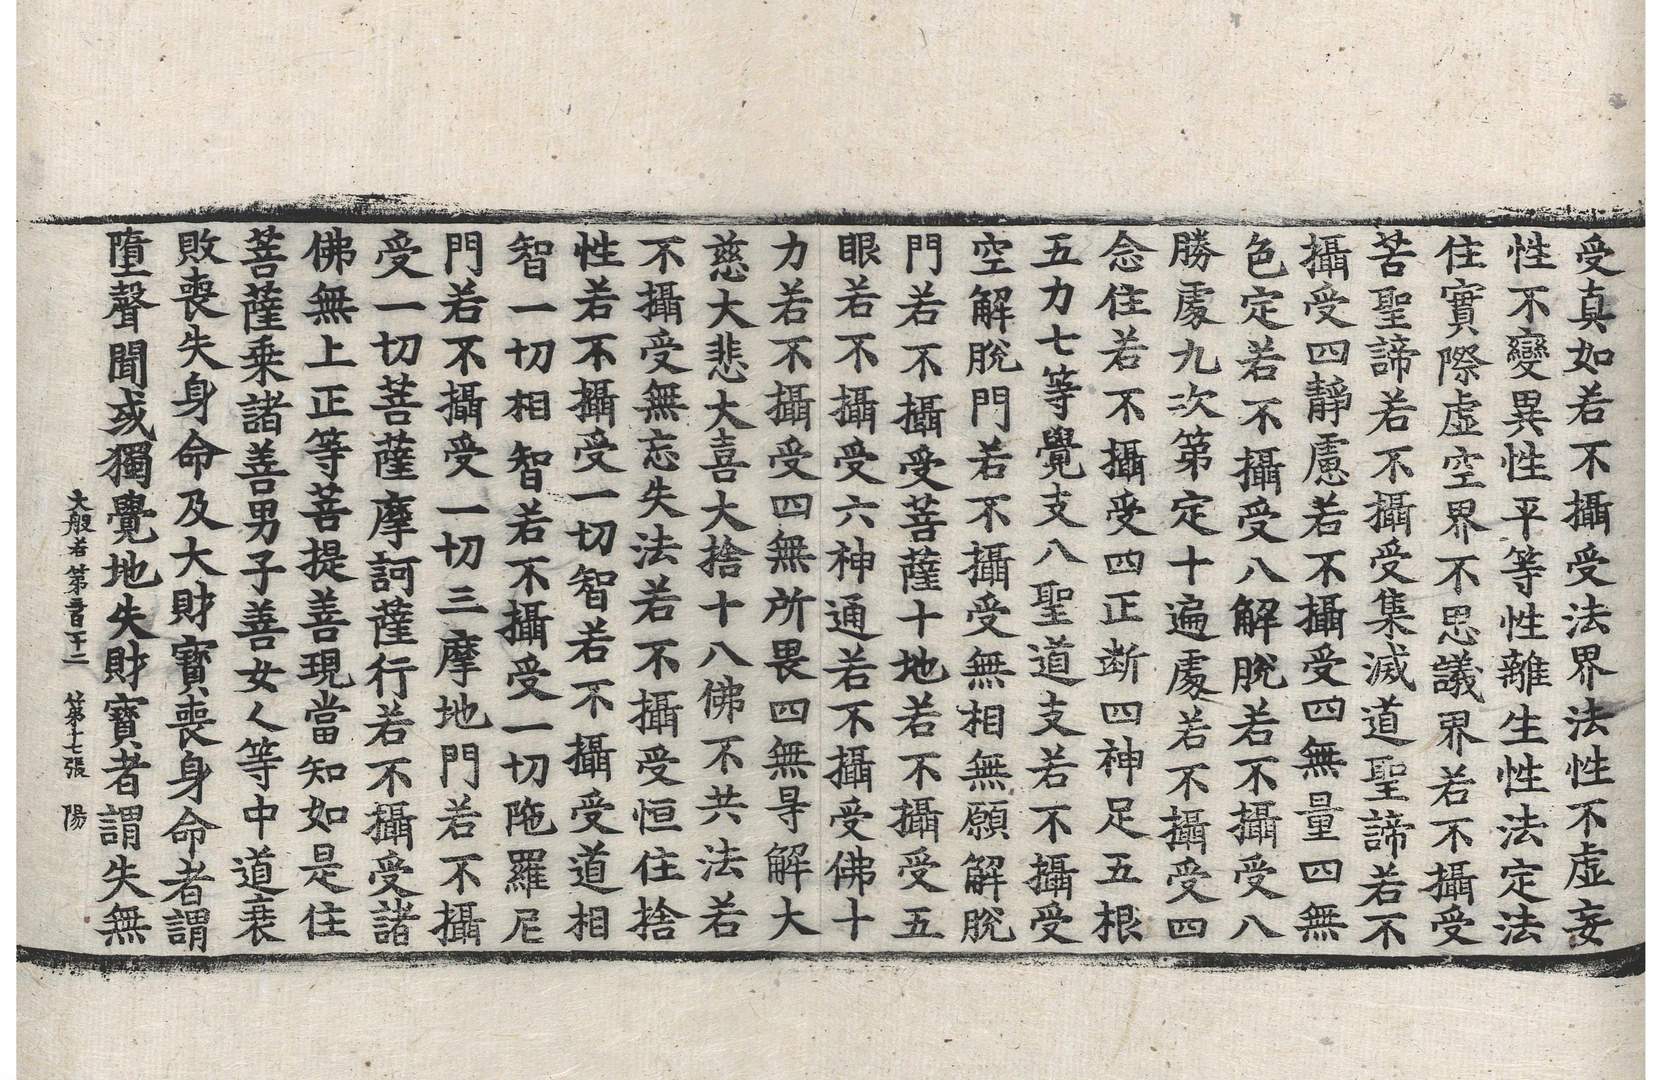 受真如若不攝受法界法性不虛妄
性不變異性平等性離生性法定法
住實際虛空界不思議界若不攝受
苦聖諦若不攝受集滅道聖諦若不
攝受四靜慮若不攝受四無量四無
色定若不攝受八解脫若不攝受八
勝處九次第定十遍處若不攝受四
念住若不攝受四正斷四神足五根
五力七等覺支八聖道支若不攝受
空解脫門若不攝受無相無願解脫
門若不攝受菩薩十地若不攝受五
眼若不攝受六神通若不攝受佛十
力若不攝受四無所畏四無㝵解大
慈大悲大喜大捨十八佛不共法若
不攝受無忘失法若不攝受恒住捨
性若不攝受一切智若不攝受道相
智一切相智若不攝受一切陁羅尼
門若不攝受一切三摩地門若不攝
受一切菩薩摩訶薩行若不攝受諸
佛無上正等菩提善現當知如是住
菩薩乘諸善男子善女人等中道衰
敗喪失身命及大財寶喪身命者謂
墮聲聞或獨覺地失財寶者謂失無
大般若第五百十二 第十七張 陽